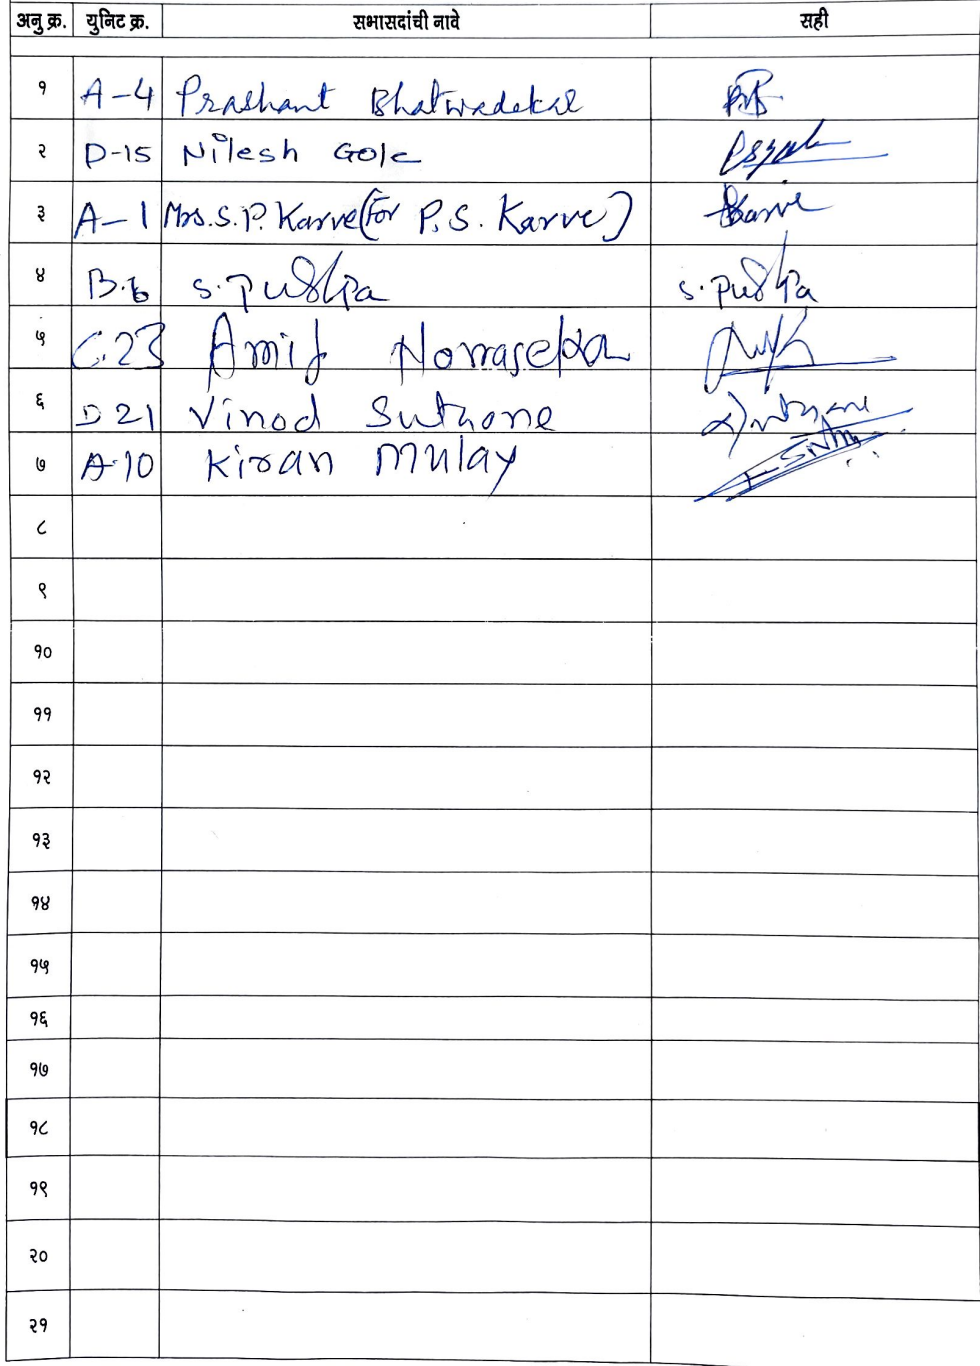 अनु क्र. युनिट क्र. सभासदांची नावे सही
१ A-4 Prashant Bhatwadekar
२ D-15 Nilesh Gole
३ A-1 Mrs. S.P. Karve (For P.S. Karve) Karve
४ B.6 S. Puspa S. Puspa
५ C.23 Amit
६ D 21 Vinod Suthone
७ A-10 Kiran Mulay
८
९
१०
११
१२
१३
१४
१५
१६
१७
१८
१९
२०
२१